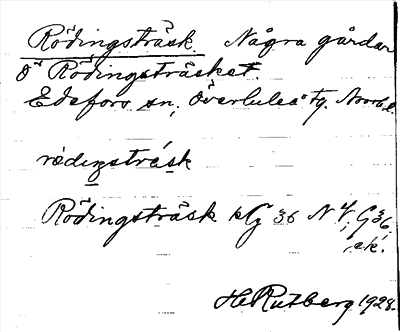 Rödingsträsk. Några gårdar
ö Rödingsträsket.
Edefors sn, Överluleå tg. Norrb.l.
rö̀diŋstrásk
Rödingsträsk kG 36 N V, G 36,
ek.
H Rutberg 1928.